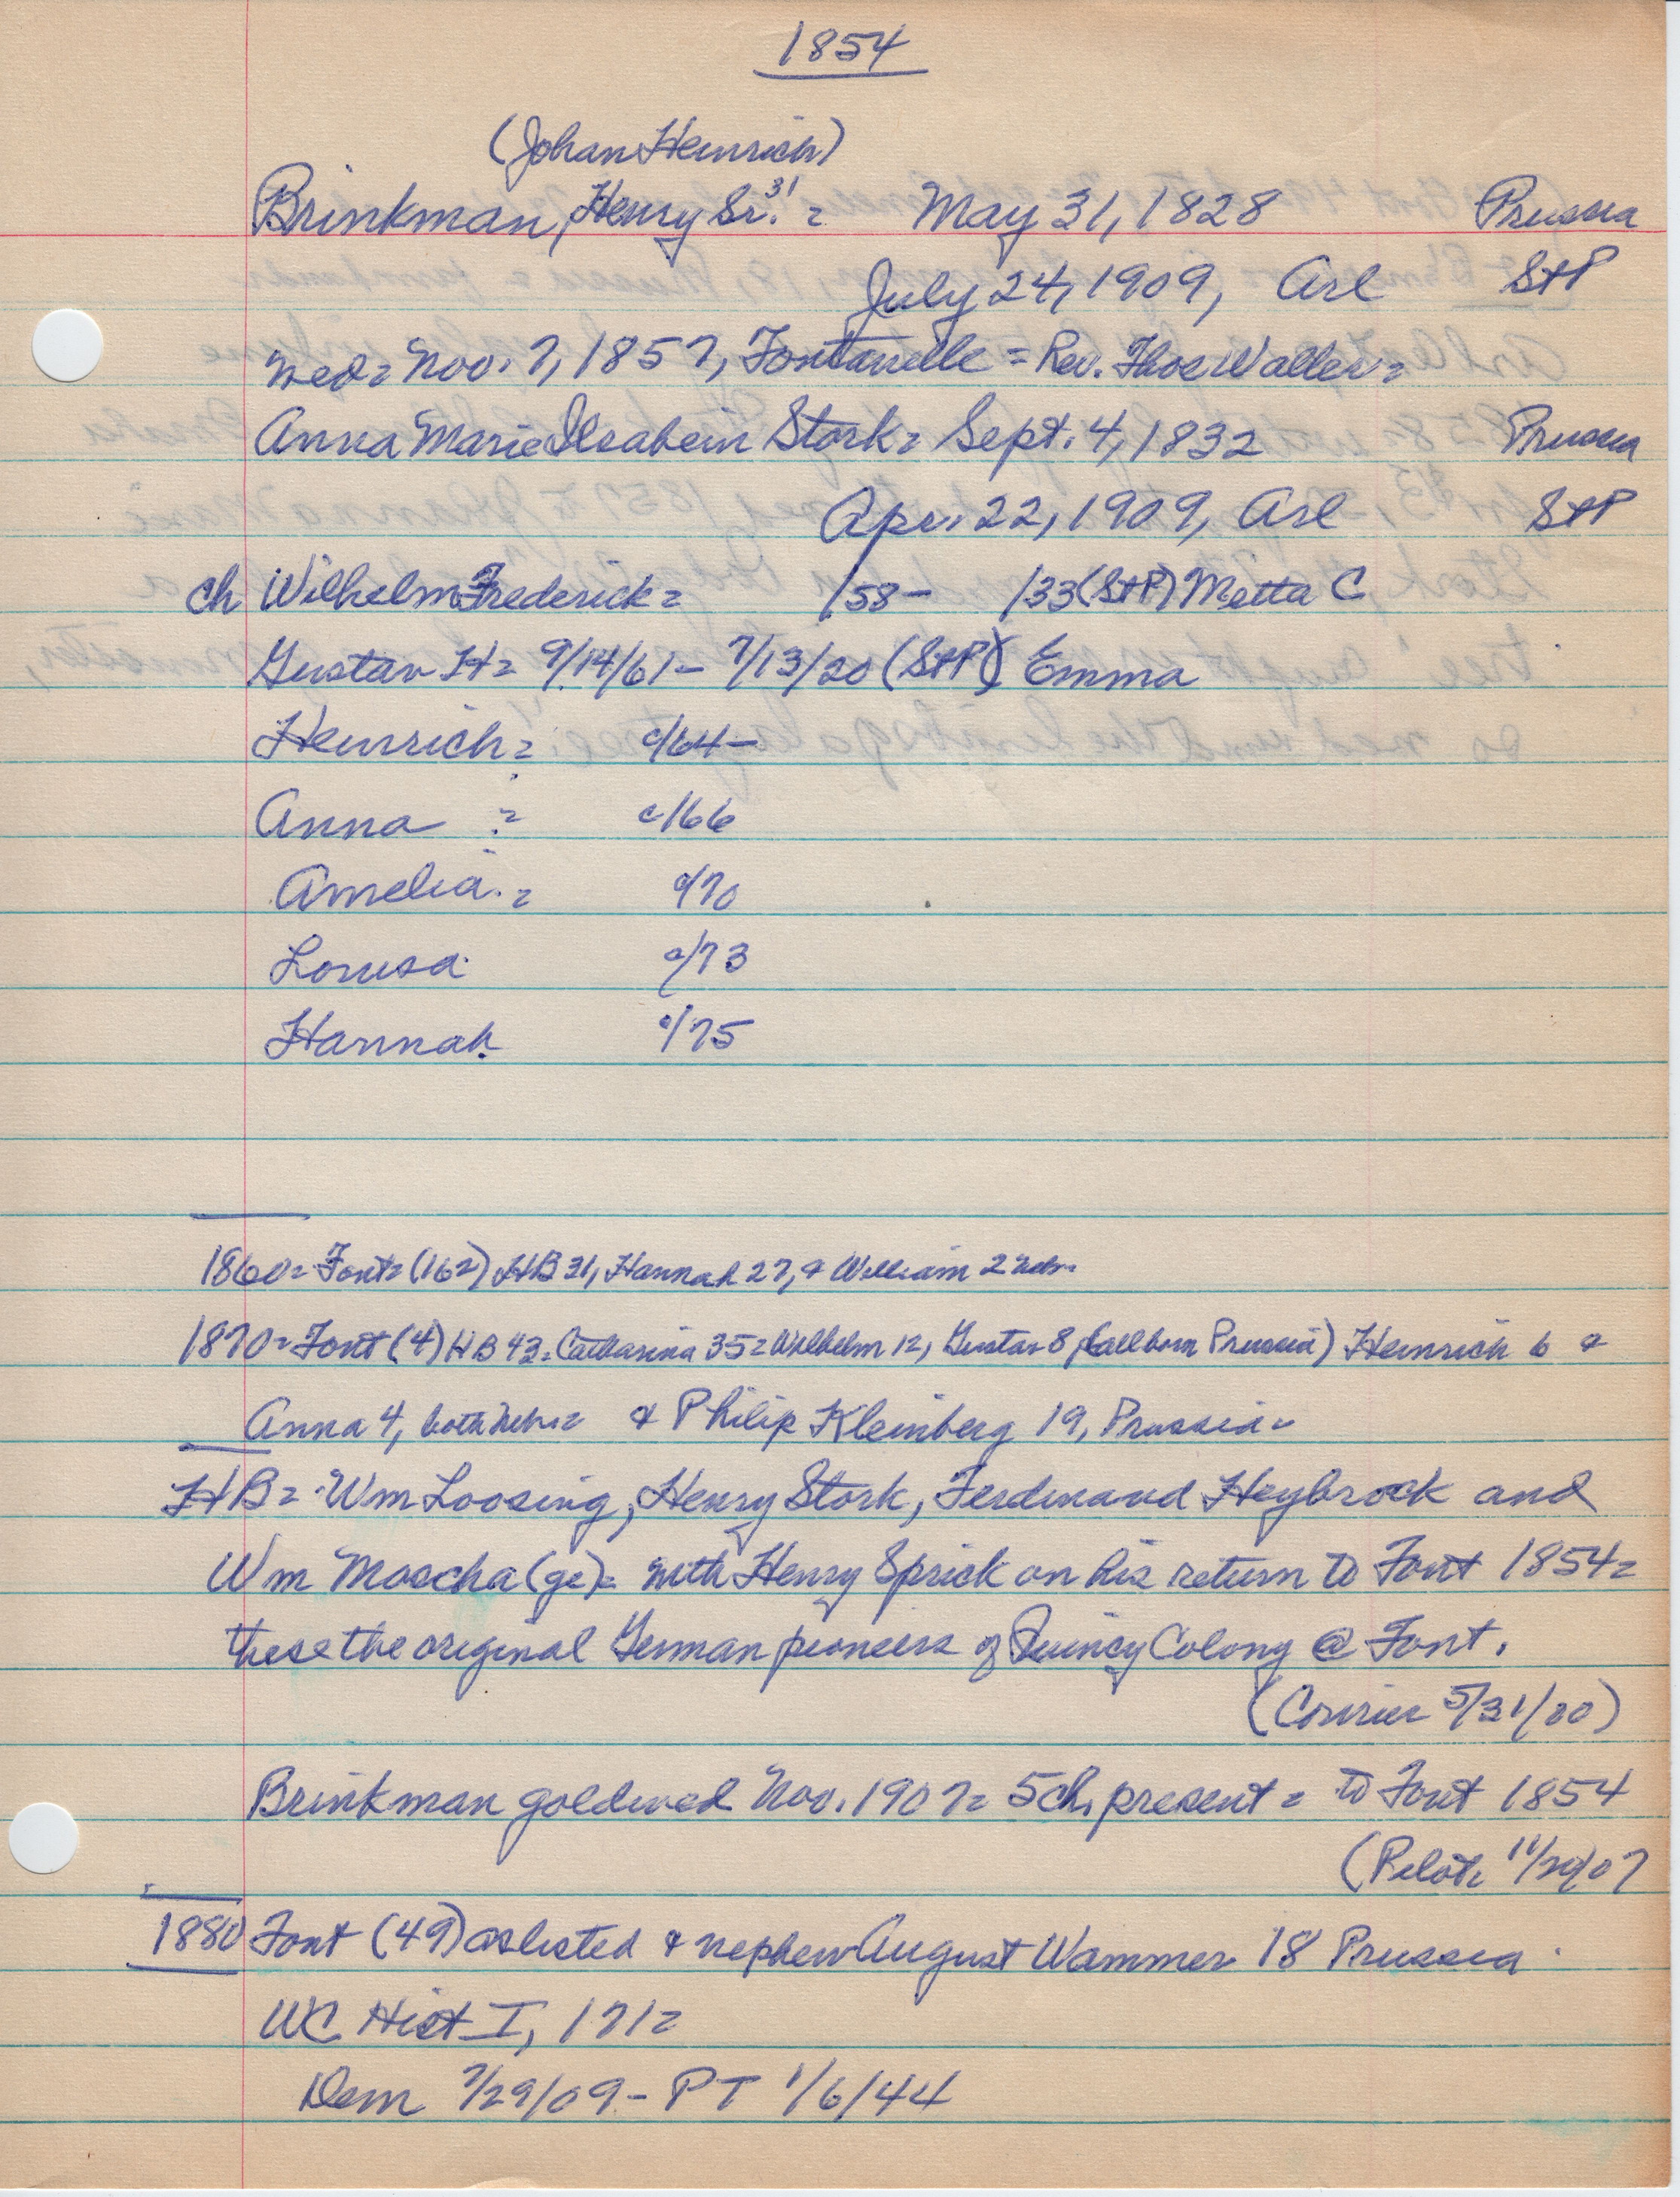 1854
(Johan Heinrich)
Brinkman, Henry Sr. 31 = May 31, 1828 Prussia
July 24, 1909, Arl StP
wed = Nov. 7, 1857, Fontanelle = Rev. Thos Waller =
Anna Marie Ilsabein Stork = Sept. 4, 1832 Prussia
Apr. 22, 1909, Arl StP
ch Wilhelm Frederick = /58 - /33 (StP) Metta C
Gustav H = 9/14/61 - 7/13/20 (StP) Emma
Heinrich = c/64 -
Anna = c/66
Amelia = c/70
Louisa c/73
Hannah c/75
1860 = Font = (162) HB 31, Hannah 27, & William 2 Neb.
1870 = Font (4) HB 43 = Catharina 35 = Wilhelm 12, Gustav 8, (all born Prussia) Heinrich 6 &
Anna 4, both Neb = & Philip Kleinberg 19, Prussia -
HB = Wm Loosing, Henry Stork, Ferdinand Heybrock and
Wm Moscha (ge) = with Henry Sprick on his return to Font 1854 =
these the original German pioneers of Quincy Colony @ Font.
(Courier 5/31/00)
Brinkman goldwed Nov. 1907 = 5 ch. present = to Font 1854
(Pilot = 11/29/07
1880 Font (49) as listed & nephew August Wammer 18 Prussia
WC Hist I, 171 =
Dem 7/29/09 - PT 1/6/44